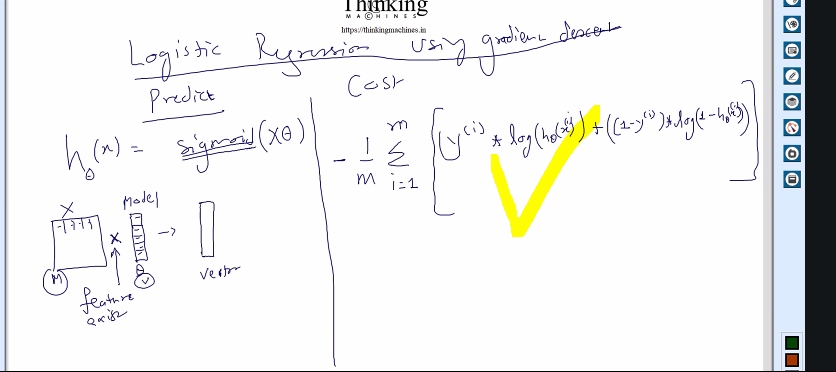 Thinking
MACHINES
https://thinkingmachines.in
Logistic Regression using gradient descent
Predict
h_θ(x) = sigmoid(Xθ)
X
Model
x
→
M
θ
V
vector
feature
axis
Cost
- 1/m Σ_{i=1}^{m} [(y^(i) * log(h_θ(x^(i))) + ((1-y^(i)) * log(1-h_θ(x^(i))))]